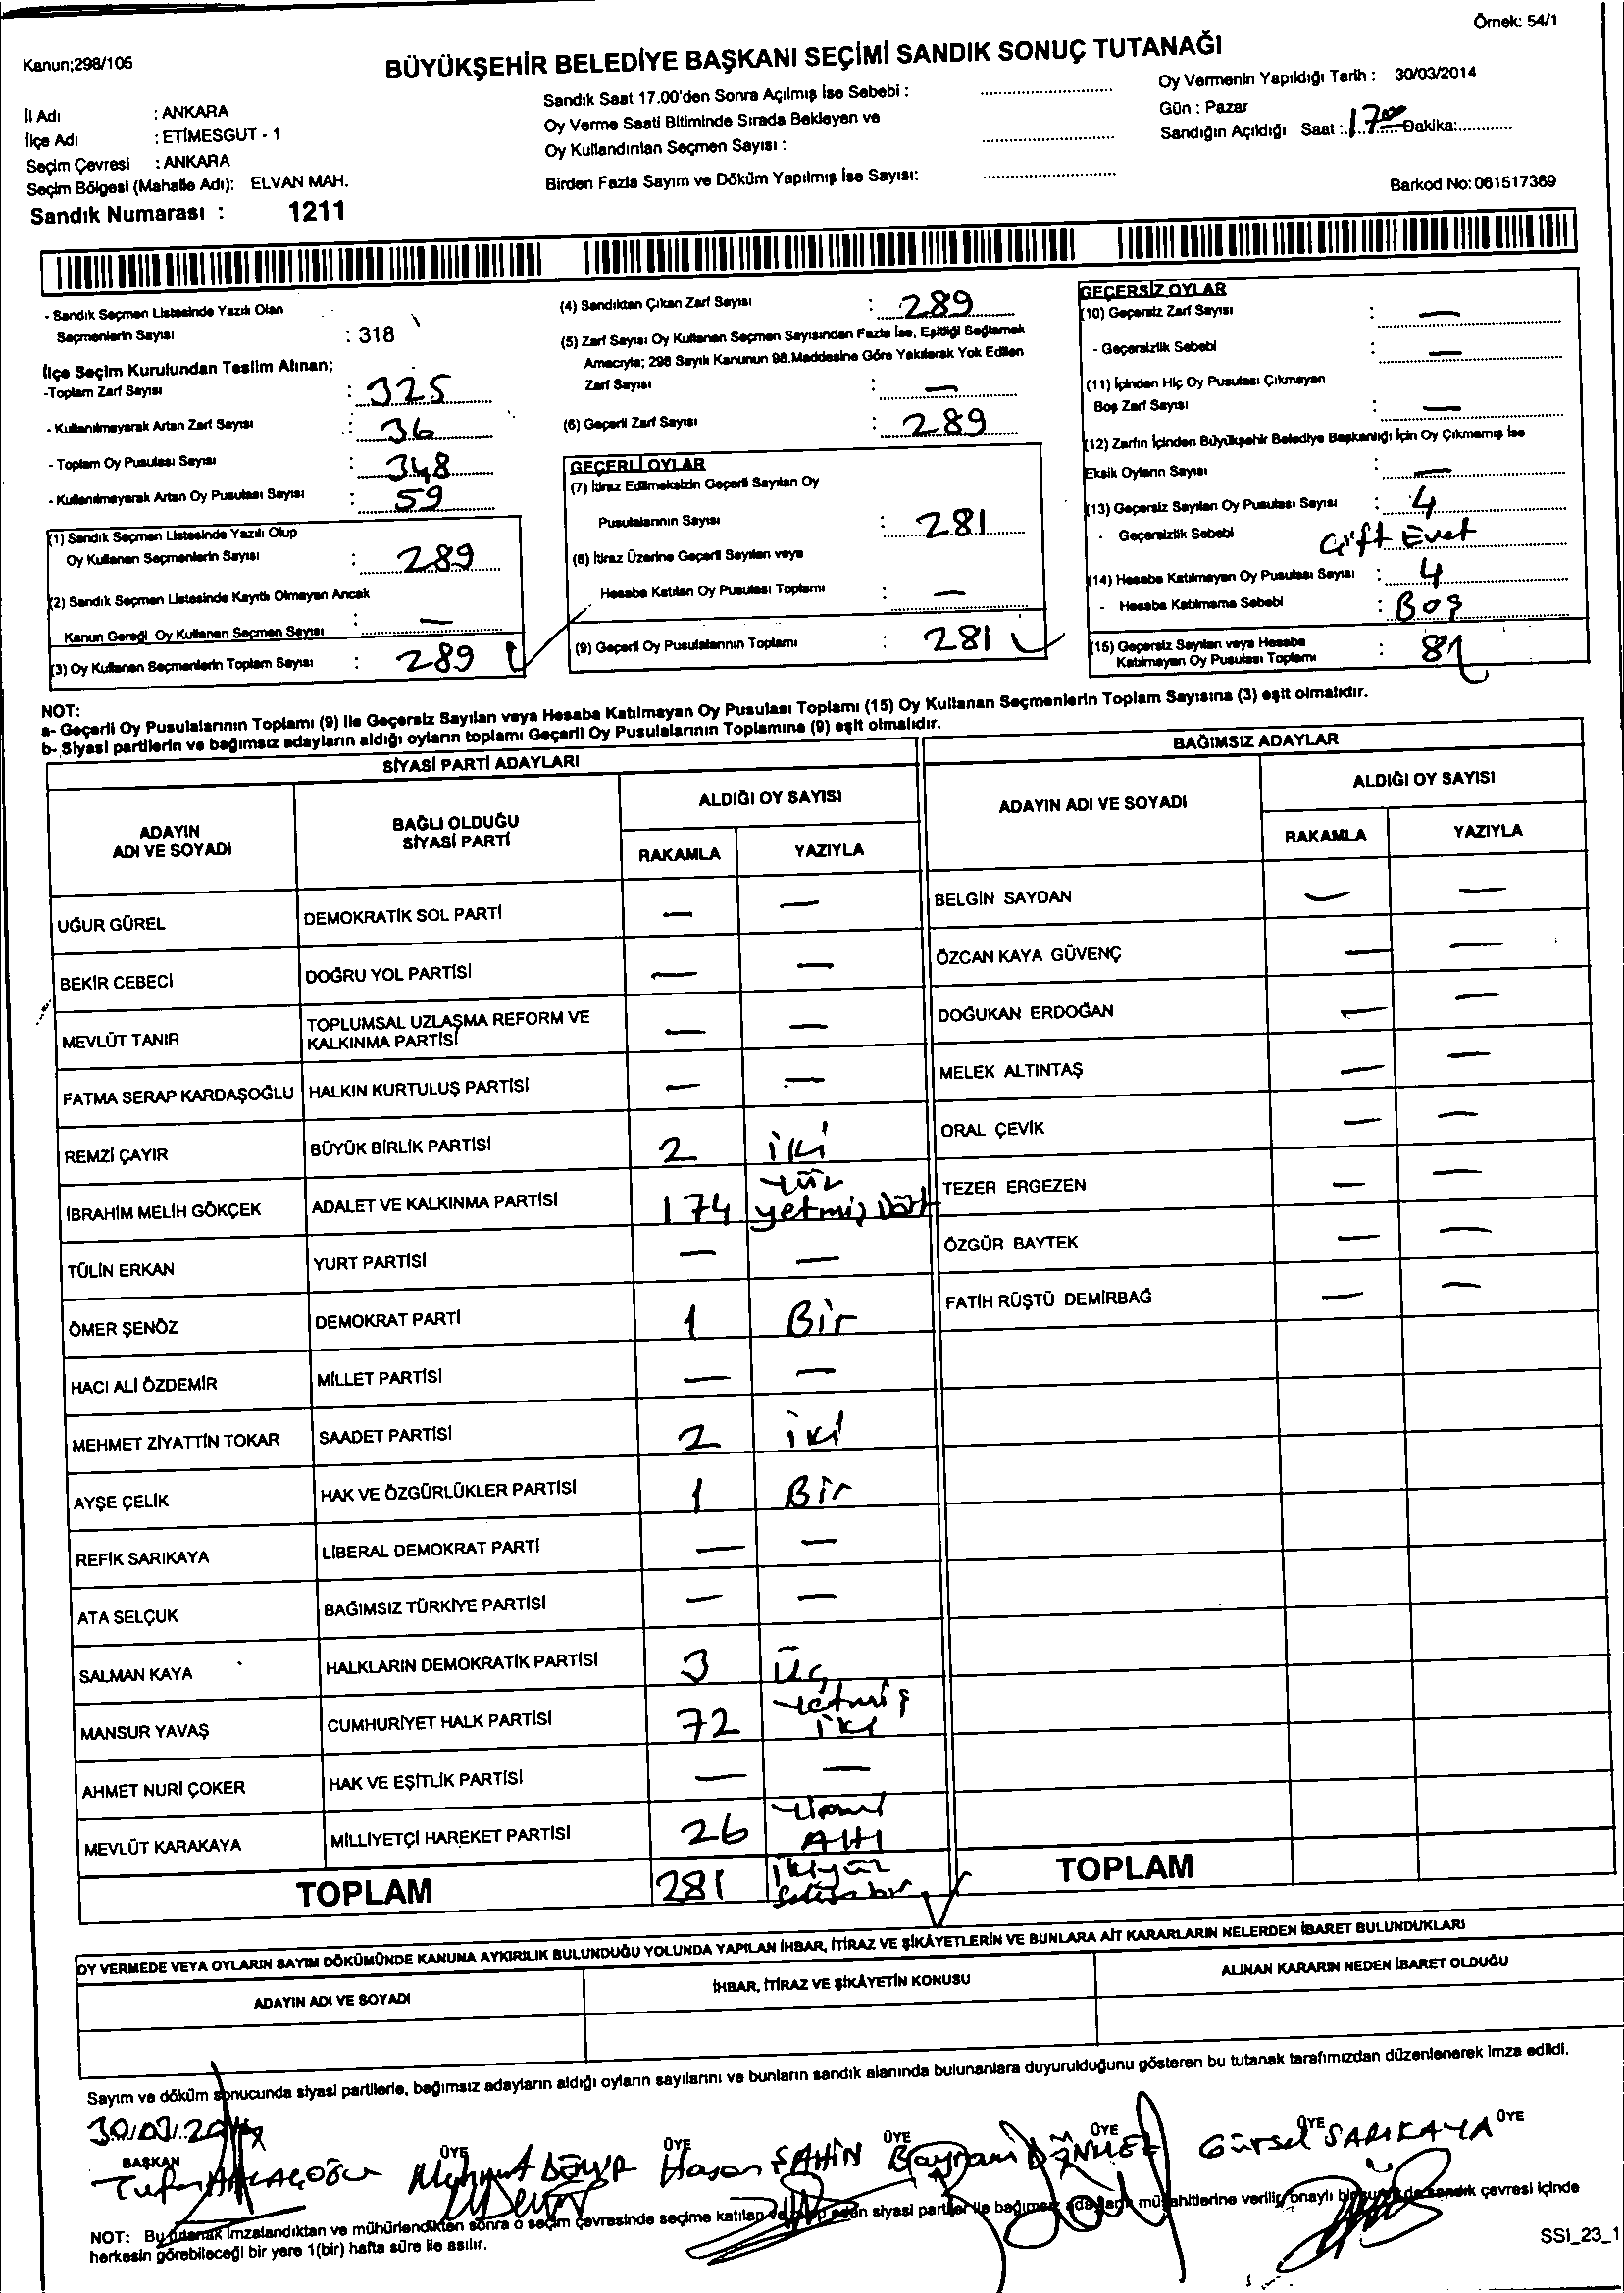 Örnek: 54/1
Kanun;298/105
BÜYÜKŞEHİR BELEDİYE BAŞKANI SEÇİMİ SANDIK SONUÇ TUTANAĞI
İl Adı : ANKARA
İlçe Adı : ETİMESGUT - 1
Seçim Çevresi : ANKARA
Seçim Bölgesi (Mahalle Adı): ELVAN MAH.
Sandık Numarası : 1211
Sandık Saat 17.00'den Sonra Açılmış İse Sebebi :
Oy Verme Saati Bitiminde Sırada Bekleyen ve
Oy Kullandırılan Seçmen Sayısı :
Birden Fazla Sayım ve Döküm Yapılmış İse Sayısı:
Oy Vermenin Yapıldığı Tarih : 30/03/2014
Gün : Pazar
Sandığın Açıldığı Saat : 17 00 Dakika:
Barkod No: 061517369
- Sandık Seçmen Listesinde Yazılı Olan
Seçmenlerin Sayısı : 318
İlçe Seçim Kurulundan Teslim Alınan;
-Toplam Zarf Sayısı : 325
- Kullanılmayarak Artan Zarf Sayısı : 36
- Toplam Oy Pusulası Sayısı : 348
- Kullanılmayarak Artan Oy Pusulası Sayısı : 59
(1) Sandık Seçmen Listesinde Yazılı Olup
Oy Kullanan Seçmenlerin Sayısı : 289
(2) Sandık Seçmen Listesinde Kayıtlı Olmayan Ancak
Kanun Gereği Oy Kullanan Seçmen Sayısı : —
(3) Oy Kullanan Seçmenlerin Toplam Sayısı : 289
(4) Sandıktan Çıkan Zarf Sayısı : 289
(5) Zarf Sayısı Oy Kullanan Seçmen Sayısından Fazla İse, Eşitliği Sağlamak
Amacıyla; 298 Sayılı Kanunun 98.Maddesine Göre Yakılarak Yok Edilen
Zarf Sayısı : —
(6) Geçerli Zarf Sayısı : 289
GEÇERLİ OYLAR
(7) İtiraz Edilmeksizin Geçerli Sayılan Oy
Pusulalarının Sayısı : 281
(8) İtiraz Üzerine Geçerli Sayılan veya
Hesaba Katılan Oy Pusulası Toplamı : —
(9) Geçerli Oy Pusulalarının Toplamı : 281
GEÇERSİZ OYLAR
(10) Geçersiz Zarf Sayısı : —
- Geçersizlik Sebebi : —
(11) İçinden Hiç Oy Pusulası Çıkmayan
Boş Zarf Sayısı : —
(12) Zarfın İçinden Büyükşehir Belediye Başkanlığı İçin Oy Çıkmamış İse
Eksik Oyların Sayısı : —
(13) Geçersiz Sayılan Oy Pusulası Sayısı : 4
- Geçersizlik Sebebi Çift Evet
(14) Hesaba Katılmayan Oy Pusulası Sayısı : 4
- Hesaba Katılmama Sebebi : Boş
(15) Geçersiz Sayılan veya Hesaba
Katılmayan Oy Pusulası Toplamı : 8
NOT:
a- Geçerli Oy Pusulalarının Toplamı (9) ile Geçersiz Sayılan veya Hesaba Katılmayan Oy Pusulası Toplamı (15) Oy Kullanan Seçmenlerin Toplam Sayısına (3) eşit olmalıdır.
b- Siyasi partilerin ve bağımsız adayların aldığı oyların toplamı Geçerli Oy Pusulalarının Toplamına (9) eşit olmalıdır.
SİYASİ PARTİ ADAYLARI
ADAYIN ADI VE SOYADI BAĞLI OLDUĞU SİYASİ PARTİ ALDIĞI OY SAYISI
RAKAMLA YAZIYLA
UĞUR GÜREL DEMOKRATİK SOL PARTİ — —
BEKİR CEBECİ DOĞRU YOL PARTİSİ — —
MEVLÜT TANIR TOPLUMSAL UZLAŞMA REFORM VE KALKINMA PARTİSİ — —
FATMA SERAP KARDAŞOĞLU HALKIN KURTULUŞ PARTİSİ — —
REMZİ ÇAYIR BÜYÜK BİRLİK PARTİSİ 2 iki
İBRAHİM MELİH GÖKÇEK ADALET VE KALKINMA PARTİSİ 174 yüz yetmiş Dört
TÜLİN ERKAN YURT PARTİSİ — —
ÖMER ŞENÖZ DEMOKRAT PARTİ 1 Bir
HACI ALİ ÖZDEMİR MİLLET PARTİSİ — —
MEHMET ZİYATTİN TOKAR SAADET PARTİSİ 2 iki
AYŞE ÇELİK HAK VE ÖZGÜRLÜKLER PARTİSİ 1 Bir
REFİK SARIKAYA LİBERAL DEMOKRAT PARTİ — —
ATA SELÇUK BAĞIMSIZ TÜRKİYE PARTİSİ — —
SALMAN KAYA HALKLARIN DEMOKRATİK PARTİSİ 3 Üç
MANSUR YAVAŞ CUMHURİYET HALK PARTİSİ 72 yetmiş iki
AHMET NURİ ÇOKER HAK VE EŞİTLİK PARTİSİ — —
MEVLÜT KARAKAYA MİLLİYETÇİ HAREKET PARTİSİ 26 yirmi Altı
TOPLAM 281 ikiyüz seksen bir
BAĞIMSIZ ADAYLAR
ADAYIN ADI VE SOYADI ALDIĞI OY SAYISI
RAKAMLA YAZIYLA
BELGİN SAYDAN — —
ÖZCAN KAYA GÜVENÇ — —
DOĞUKAN ERDOĞAN — —
MELEK ALTINTAŞ — —
ORAL ÇEVİK — —
TEZER ERGEZEN — —
ÖZGÜR BAYTEK — —
FATİH RÜŞTÜ DEMİRBAĞ — —
TOPLAM
OY VERMEDE VEYA OYLARIN SAYIM DÖKÜMÜNDE KANUNA AYKIRILIK BULUNDUĞU YOLUNDA YAPILAN İHBAR, İTİRAZ VE ŞİKÂYETLERİN VE BUNLARA AİT KARARLARIN NELERDEN İBARET BULUNDUKLARI
ADAYIN ADI VE SOYADI İHBAR, İTİRAZ VE ŞİKÂYETİN KONUSU ALINAN KARARIN NEDEN İBARET OLDUĞU
Sayım ve döküm sonucunda siyasi partilerle, bağımsız adayların aldığı oyların sayılarını ve bunların sandık alanında bulunanlara duyurulduğunu gösteren bu tutanak tarafımızdan düzenlenerek imza edildi.
30.03.2014
BAŞKAN ÜYE ÜYE ÜYE ÜYE ÜYE ÜYE
Mehmet DEMİR Hasan ŞAHİN Bayram DÖNMEZ Gürsel SARIKAYA
NOT: Bu tutanak imzalandıktan ve mühürlendikten sonra o seçim çevresinde seçime katılan siyasi partiler ile bağımsız adayların müşahitlerine verilir, onaylı bir sureti de sandık çevresi içinde
herkesin görebileceği bir yere 1(bir) hafta süre ile asılır.
SSI_23_1